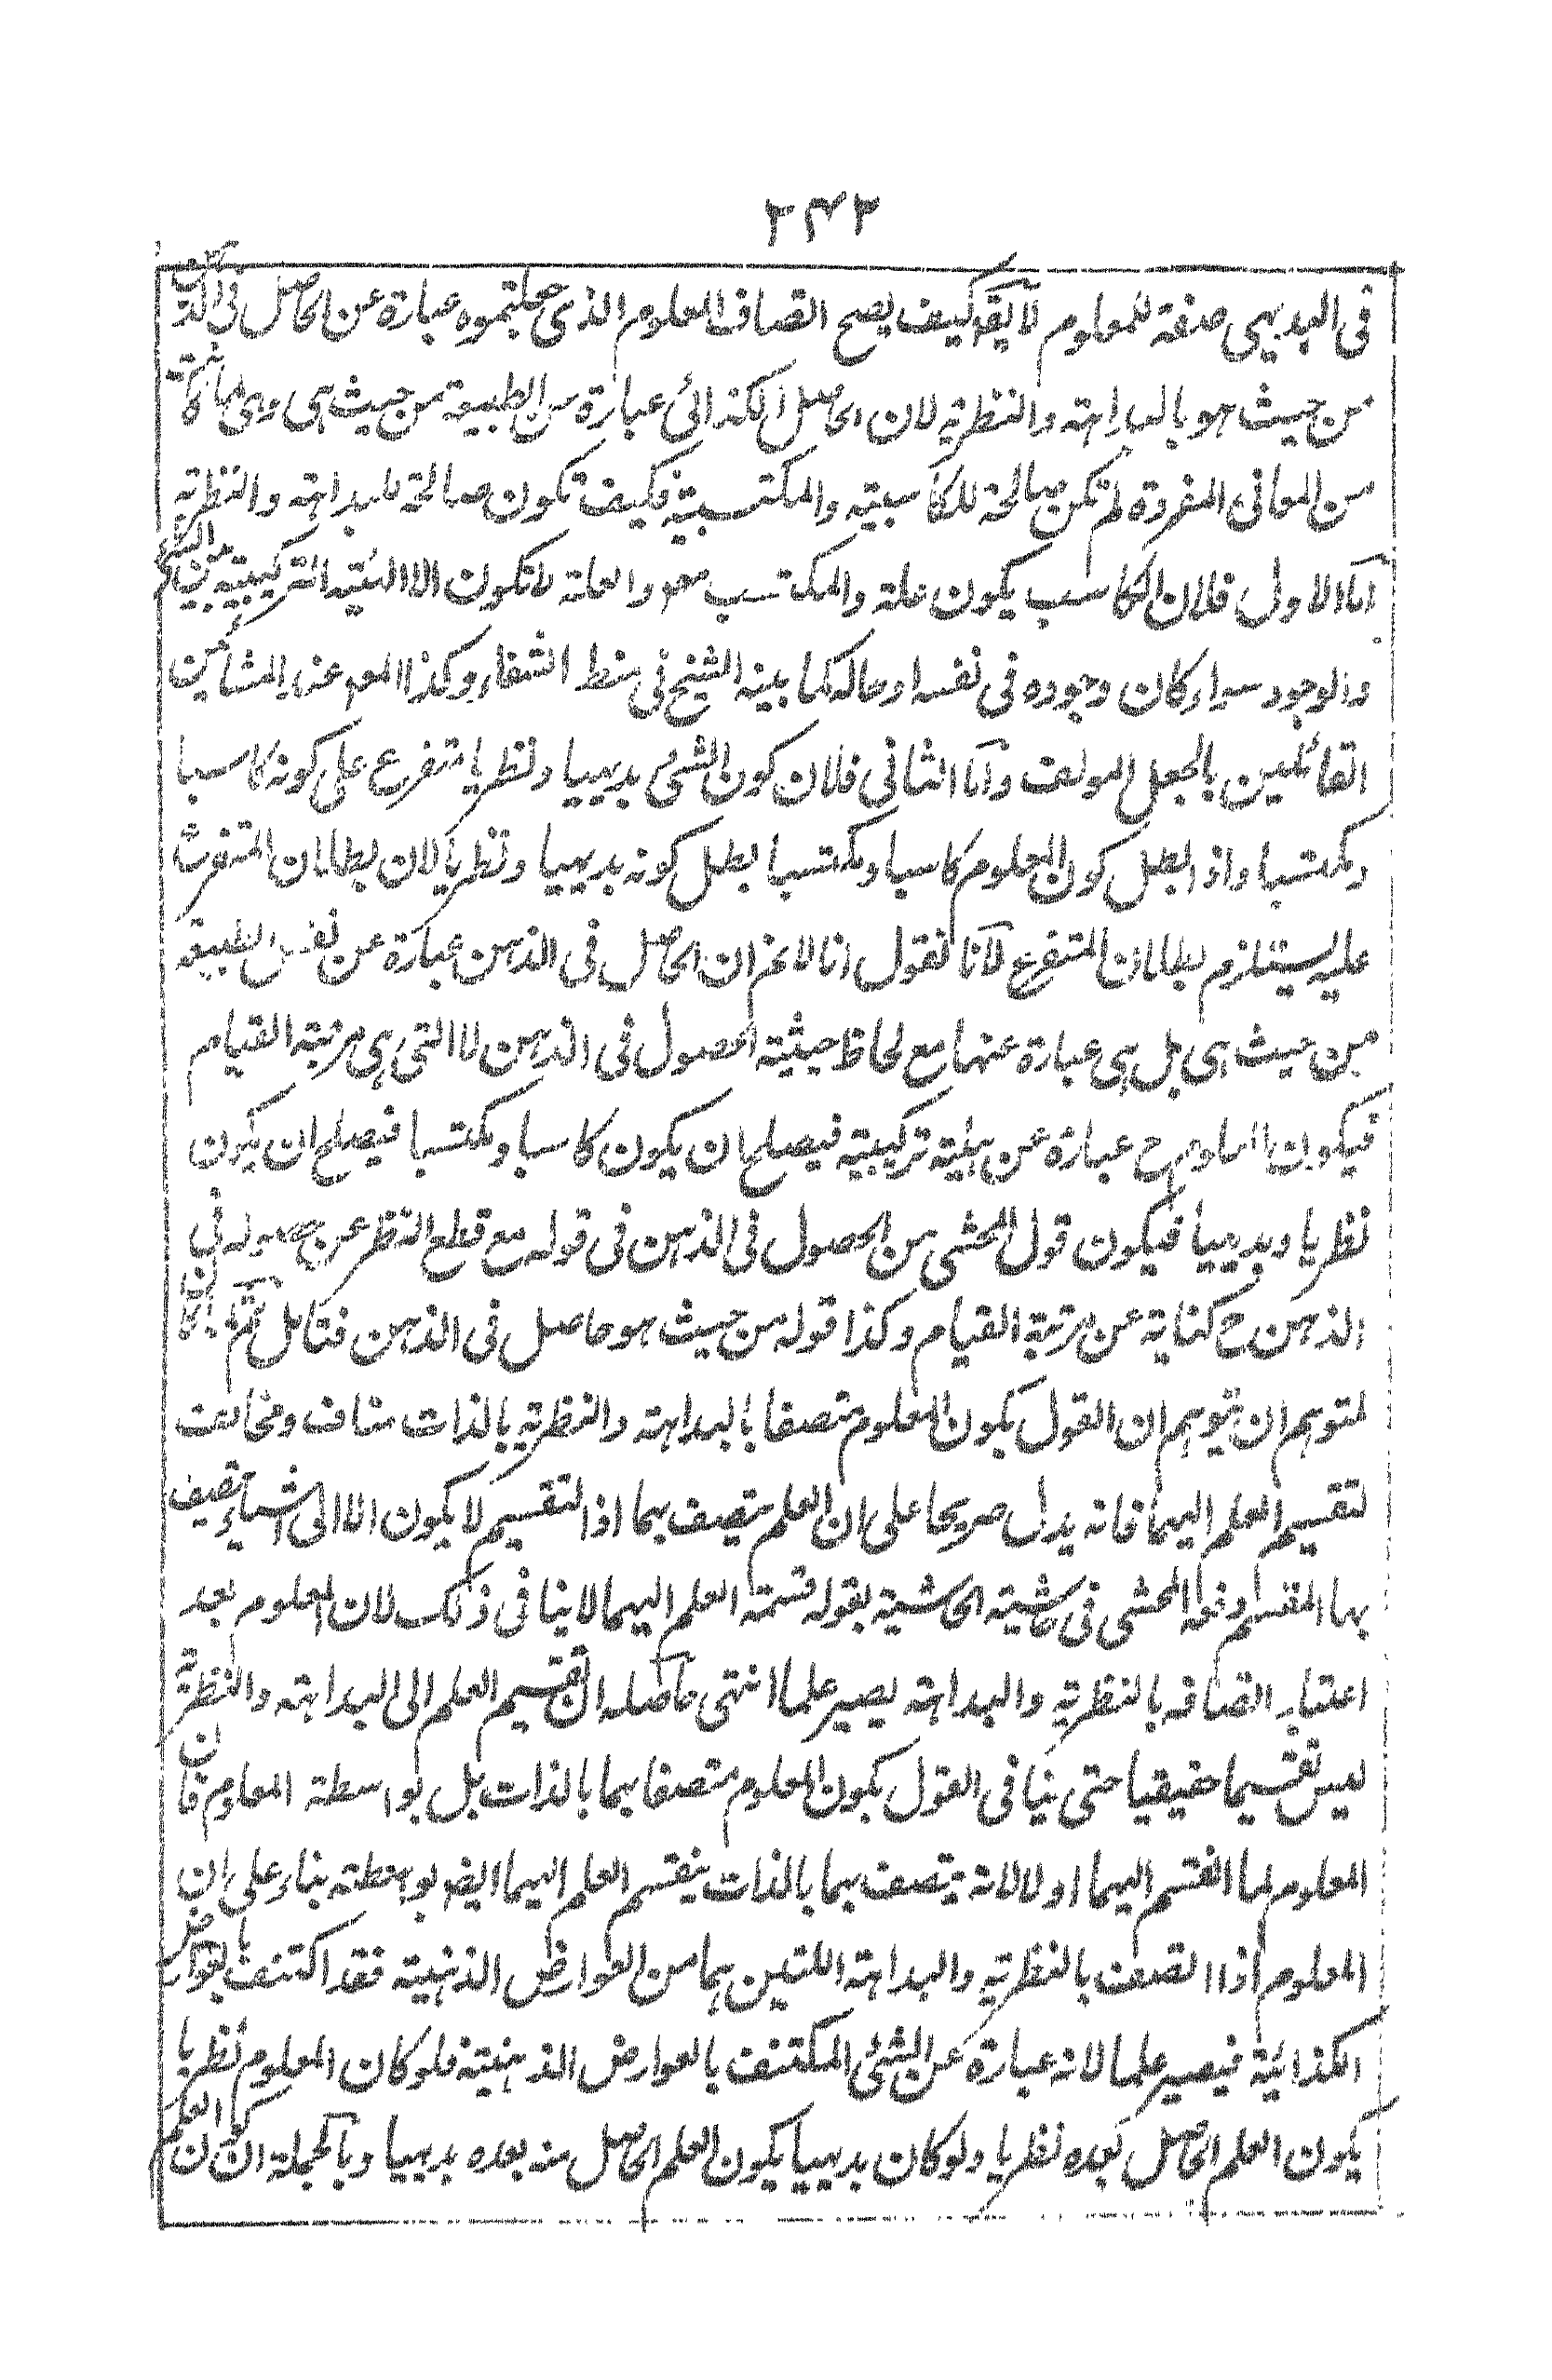 ٢٤٣
فى البديهى صفة للمعلوم لا يقو كيف يصح اتصاف المعلوم الذى جعلتموه عبارة عن الحاصل فى الذهن
من حيث هو بالبداهته والنظريه لان الحاصل الكذائى عبارة عن الطبيعة من حيث هى وهى لما كانت
من المعانى المفردة لم تكن صالحة للكاسبيته والمكتسبيته فكيف تكون صالحة للبداهته والنظريته
اما الاول فلان الكاسب يكون علة والمكتسب معلولا والعلة لا تكون الا الهئيته التركيبيته بين الشئ
والوجود سواء كان وجوده فى نفسه او حاله كما بينه الشيخ فى منطق الشفاء وكذا المعلول عند المشائين
القائلين بالجعل المولف واما الثانى فلان كون الشئ بديهيا ونظريا متفرع على كونه كاسبا
ومكتسبا واذا بطل كون المعلوم كاسبا ومكتسبا بطل كونه بديهيا ونظريا لان بطلان المتفرع
عليه يستلزم بطلان المتفرع لانا نقول انا لا نم ان الحاصل فى الذهن عبارة عن نفس الطبيعة
من حيث هى بل هى عبارة عنها مع لحاظ حيثية الحصول فى الذهن لا التى هى مرتبة القيام
فيكون المعلوم ح عبارة عن هيئة تركيبية فيصلح ان يكون كاسبا ومكتسبا فيصلح ان يكون
نظريا وبديهيا فيكون قول المحشى من الحصول فى الذهن فى قوله مع قطع النظر عن حصوله فى
الذهن ح كناية عن مرتبة القيام وكذا قوله من حيث هو حاصل فى الذهن فتامل ثم لما كان
لمتوهم ان يتوهم ان القول بكون المعلوم متصفا بالبداهته والنظريه بالذات مناف ومخالف
لتقسيم العلم اليهما فانه يدل صريحا على ان العلم متصف بهما اذ التقسيم لا يكون الا الى اشياء يتصف
بها المقسم دفعه المحشى فى حاشية الحاشية بقوله قسمة العلم اليهما لا ينافى ذلك لان المعلوم بعد
اعتبار اتصافه بالنظريه والبداهته يصير علما انتهى حاصله ان تقسيم العلم الى البداهته والنظريه
ليس تقسيما حقيقيا حتى ينافى القول بكون المعلوم متصفا بهما بالذات بل بواسطة المعلوم فان
المعلوم لما انقسم اليهما اولا لانه يتصف بهما بالذات ينقسم العلم اليهما ايضو بواسطته بناء على ان
المعلوم اذا اتصف بالنظريه والبداهته اللتين هما من العوارض الذهنيته فقد اكتنف بالعوارض
الكذائية فيصير علما لانه عبارة عن الشئ المكتنف بالعوارض الذهنية فلو كان المعلوم نظريا
يكون العلم الحاصل بعده نظريا ولو كان بديهيا يكون العلم الحاصل منه بعده بديهيا وبالجملة ان كون العلم